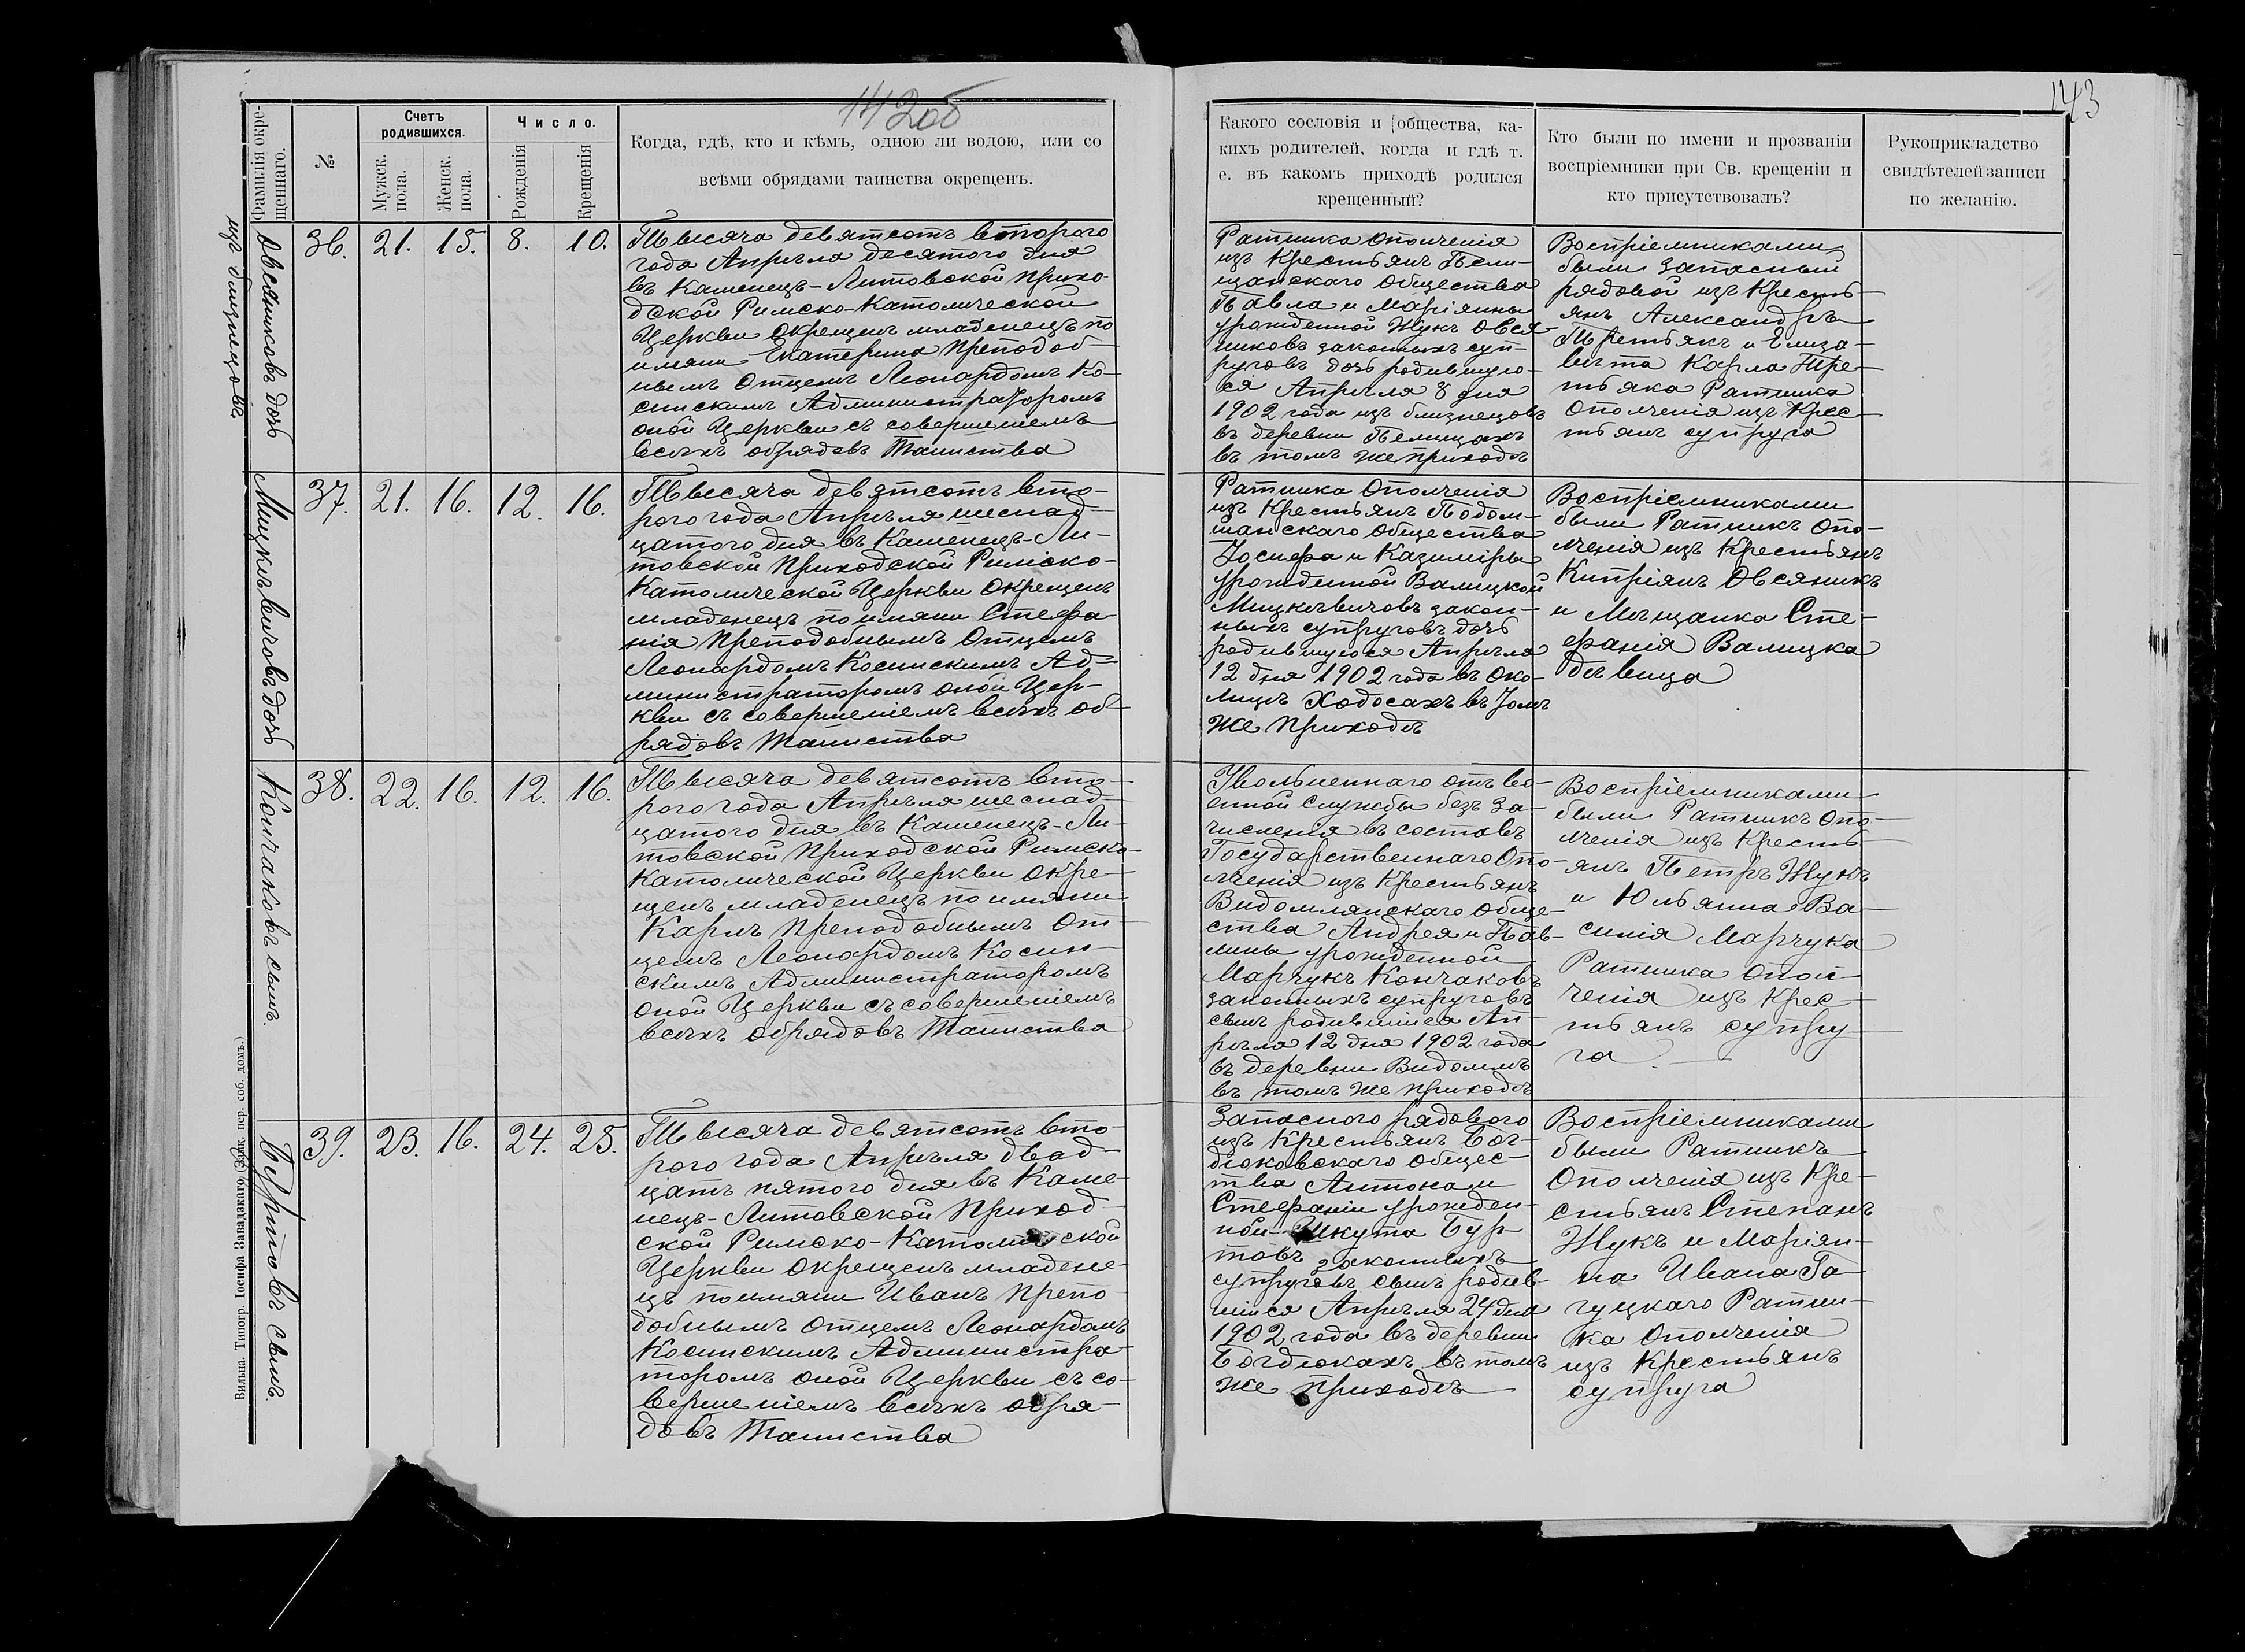 142об
143
Фамилія окре-
щеннаго.
№
Счетъ
родившихся.
Мужск.
пола.
Женск.
пола.
Число.
Рожденія
Крещенія
Когда, гдѣ, кто и кѣмъ, одною ли водою, или со
всѣми обрядами таинства окрещенъ.
Какого сословія и общества, ка-
кихъ родителей, когда и гдѣ т.
е. въ какомъ приходѣ родился
крещенный?
Кто были по имени и прозванію
воспріемники при Св. крещеніи и
кто присутствовалъ?
Рукоприкладство
свидѣтелей записи
по желанію.
Овсяниковъ дочь
изъ близнецовъ.
36. 21. 15. 8. 10.
Тысяча девятсотъ второго
года Апрѣля десятого дня
въ Каменецъ-Литовской прихо-
дской Римско-Католической
Церкви окрещенъ младенецъ по
имяни Екатерина преподоб-
нымъ Отцемъ Леонардомъ Ко-
синскимъ Администраторомъ
оной Церкви съ совершеніемъ
всѣхъ обрядовъ Таинства
Ратника ополченія
изъ Крестьянъ Пели-
щанскаго общества
Павла и Маріянны
урожденной Жукъ Овся-
никовъ законныхъ суп-
руговъ дочь родившую-
ся Апрѣля 8 дня
1902 года изъ близнецовъ
въ деревни Пелищахъ
въ томъ же приходѣ
Воспріемниками
были запасный
рядовой изъ Кресть-
янъ Александръ
Третьякъ и Елиза-
вѣта Карла Тре-
тьяка Ратника
Ополченія изъ Крес-
тьянъ супруга
Мицкѣвичовъ дочь
37. 21. 16. 12. 16.
Тысяча девятсотъ вто-
рого года Апрѣля шеснад-
цатого дня въ Каменецъ-Ли-
товской приходской Римско-
Католической Церкви окрещенъ
младенецъ по имяни Стефа-
нія преподобнымъ Отцемъ
Леонардомъ Косинскимъ Ад-
министраторомъ оной Цер-
кви съ совершеніемъ всѣхъ об-
рядовъ Таинства
Ратника Ополченія
изъ Крестьянъ Подом-
шанскаго общества
Іосифа и Казиміры
урожденной Валицкой
Мицкѣвичовъ закон-
ныхъ супруговъ дочь
родившуюся Апрѣля
12 дня 1902 года въ око-
лицѣ Ходосахъ въ томъ
же приходѣ
Воспріемниками
были Ратникъ Опо-
лченія изъ Крестьянъ
Кипріянъ Овсяникъ
и Мѣщанка Сте-
фанія Валицка
дѣвица
Кончаковъ сынъ.
38. 22. 16. 12. 16.
Тысяча девятсотъ вто-
рого года Апрѣля шеснад-
цатого дня въ Каменецъ-Ли-
товской приходской Римско-
Католической Церкви окре-
щенъ младенецъ по имяни
Карлъ преподобнымъ От-
цемъ Леонардомъ Косин-
скимъ Администраторомъ
оной Церкви съ совершеніемъ
всѣхъ обрядовъ Таинства
Увольненнаго отъ во-
енной службы безъ за-
численія въ составъ
Государственнаго Опо-
лченія изъ Крестьянъ
Видомлянскаго обще-
ства Андрея и Пав-
лины урожденной
Марчукъ Кончаковъ
законныхъ супруговъ
сынъ родившійся Ап-
рѣля 12 дня 1902 года
въ деревни Видомлѣ
въ томъ же приходѣ
Воспріемниками
были Ратникъ Опо-
лченія изъ Кресть-
янъ Петръ Жукъ
и Юльянна Ва-
силія Марчука
Ратника Опол-
ченія изъ Крес-
тьянъ супру-
га
Буртовъ сынъ.
39. 23. 16. 24. 25.
Тысяча девятсотъ вто-
рого года Апрѣля двад-
цать пятого дня въ Каме-
нецъ-Литовской приход-
ской Римско-Католической
Церкви окрещенъ младене-
цъ по имяни Иванъ препо-
добнымъ отцемъ Леонардомъ
Косинскимъ Администра-
торомъ оной Церкви съ со-
вершеніемъ всѣхъ обря-
довъ Таинства
Запасного рядового
изъ Крестьянъ Бог-
дюковскаго общес-
тва Антона и
Стефаніи урожден-
ной Шкута Бур-
товъ законныхъ
супруговъ сынъ родив-
шійся Апрѣля 24 дня
1902 года въ деревни
Богдюкахъ въ томъ
же приходѣ
Воспріемниками
были Ратникъ
Ополченія изъ Кре-
стьянъ Степанъ
Жукъ и Маріян-
на Ивана Га-
гуцкаго Ратни-
ка Ополченія
изъ Крестьянъ
супруга
Вильна. Типогр. Іосифа Завадзкаго (Замк. пер. соб. домъ.)